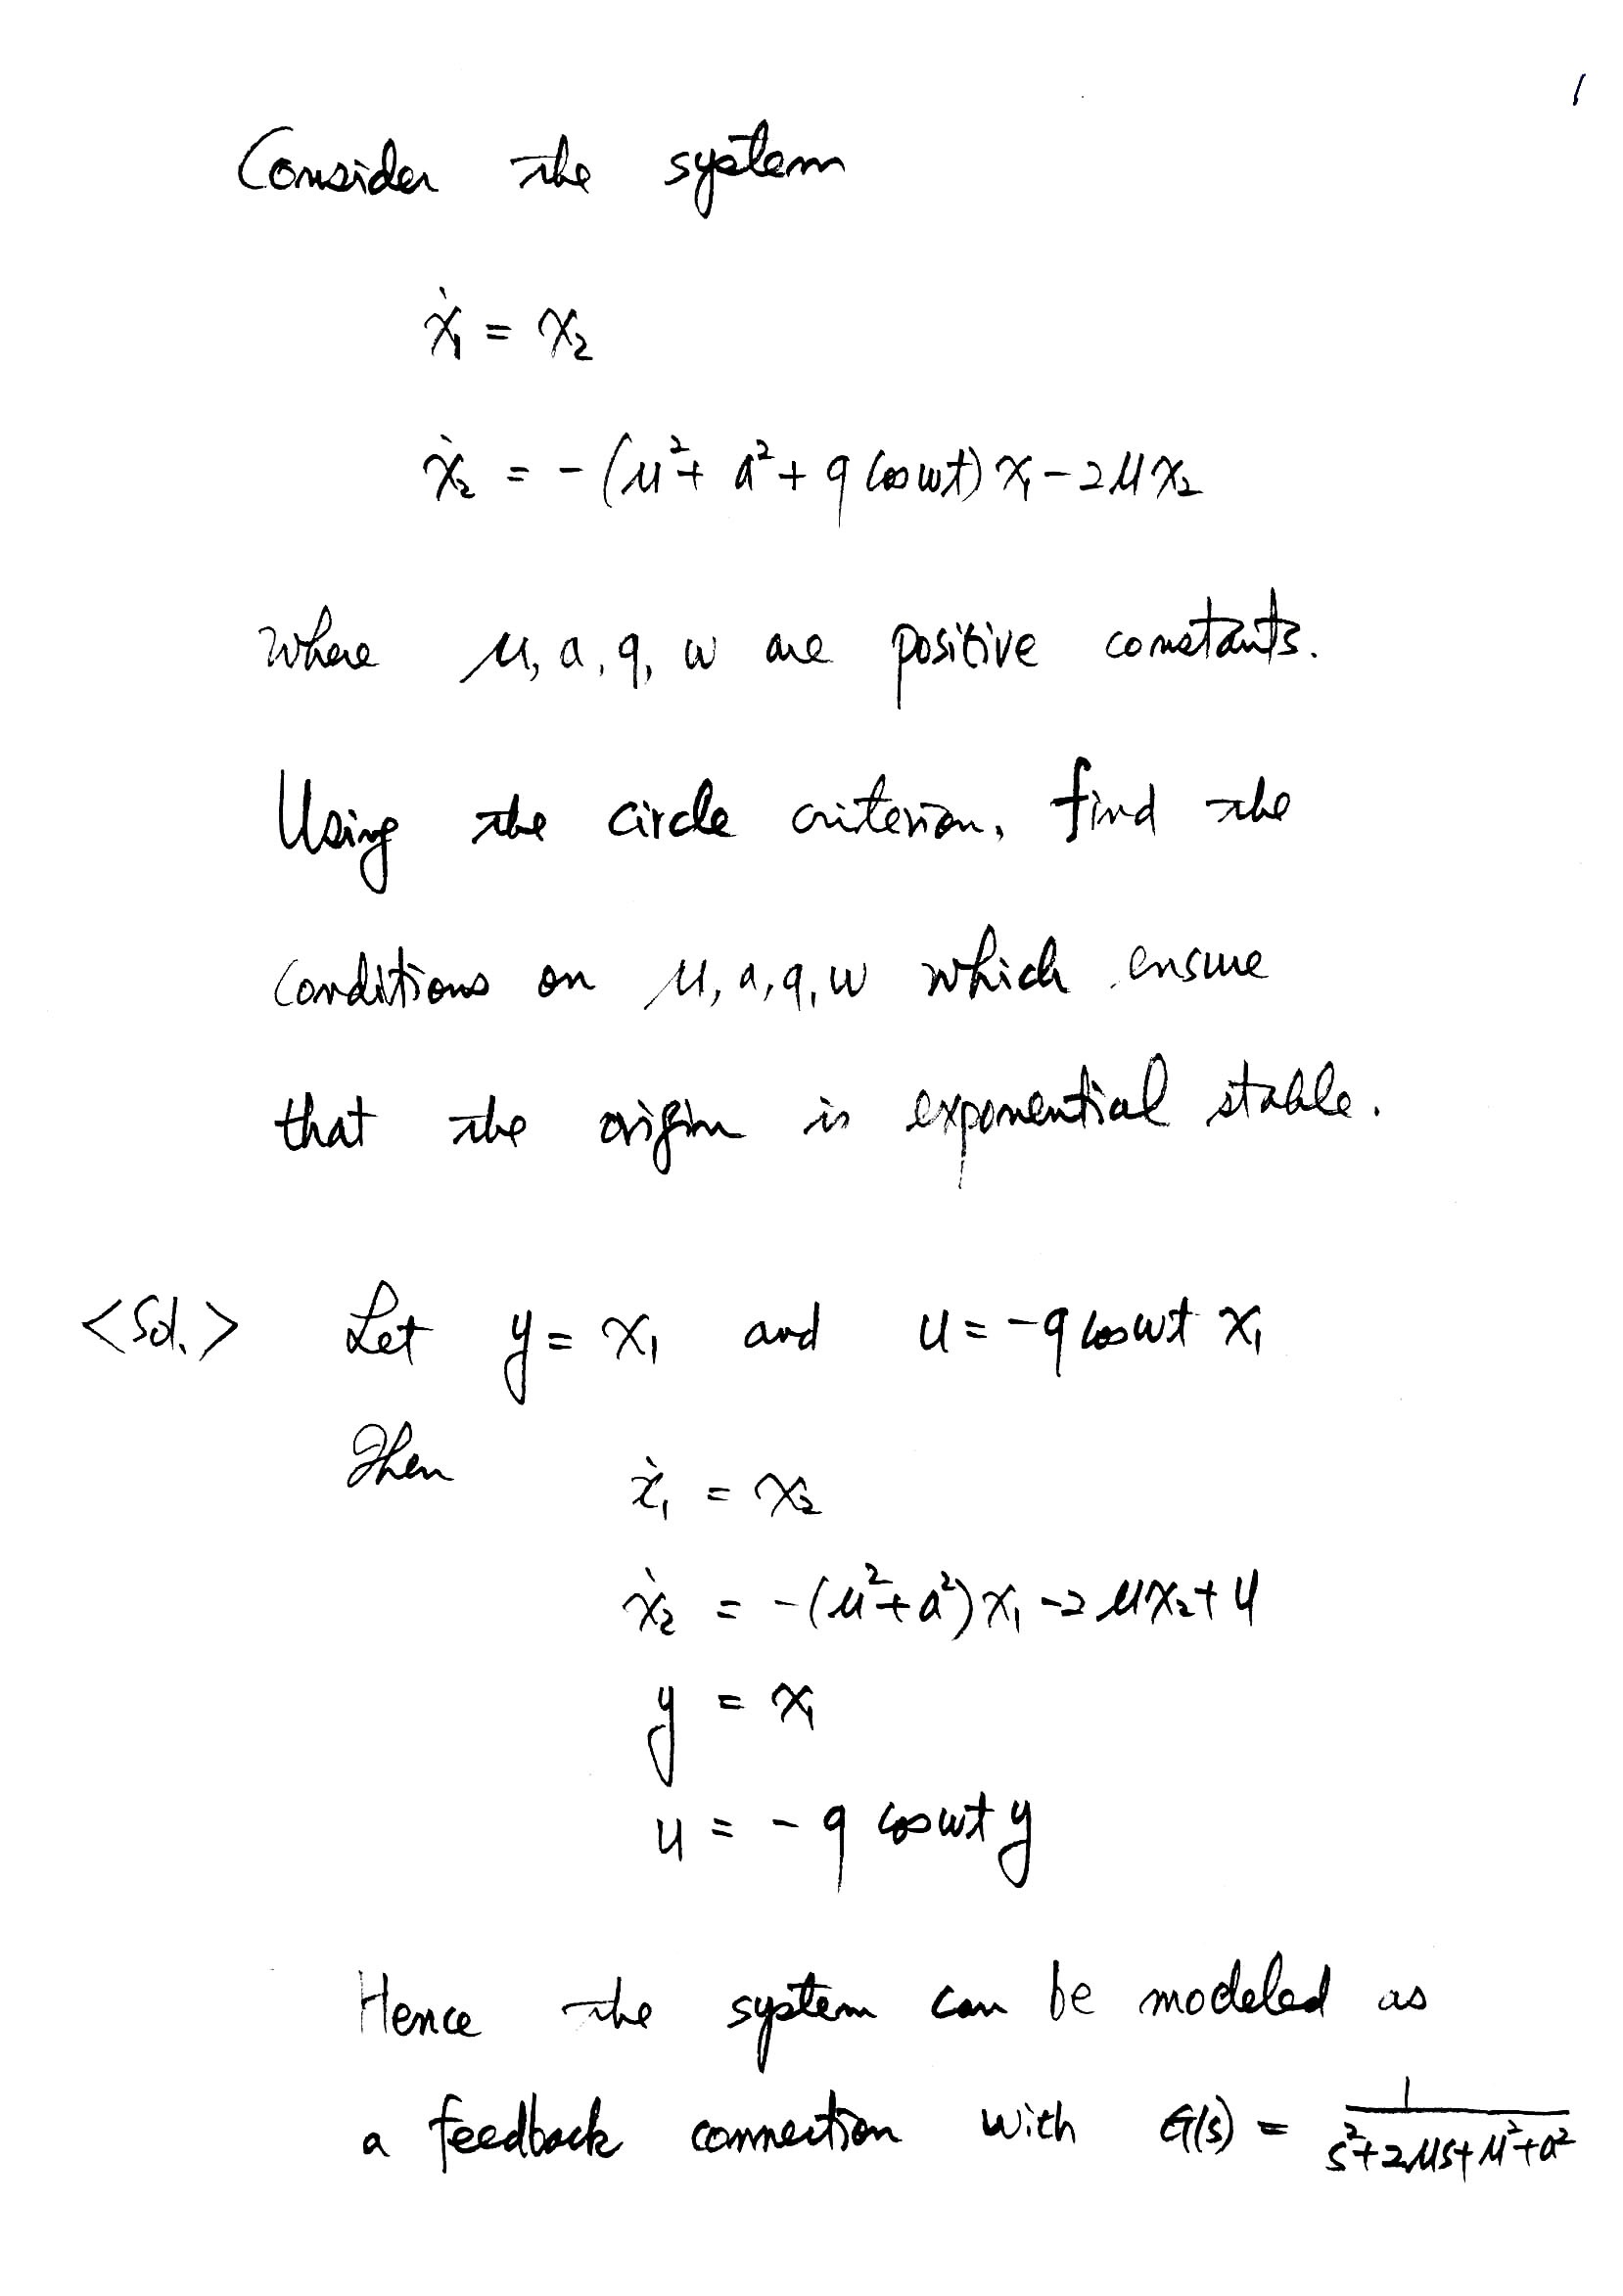 1
Consider the system
ẋ₁ = x₂
ẋ₂ = -(μ² + a² + q cos ωt) x₁ - 2μx₂
where μ, a, q, ω are positive constants.
Using the circle criterion, find the
conditions on μ, a, q, ω which ensure
that the origin is exponential stable.
<Sol.> Let y = x₁ and u = -q cos ωt x₁
Then ẋ₁ = x₂
ẋ₂ = -(μ² + a²) x₁ - 2μx₂ + u
y = x₁
u = -q cos ωt y
Hence the system can be modeled as
a feedback connection with G(s) = 1/(s² + 2μs + μ² + a²)